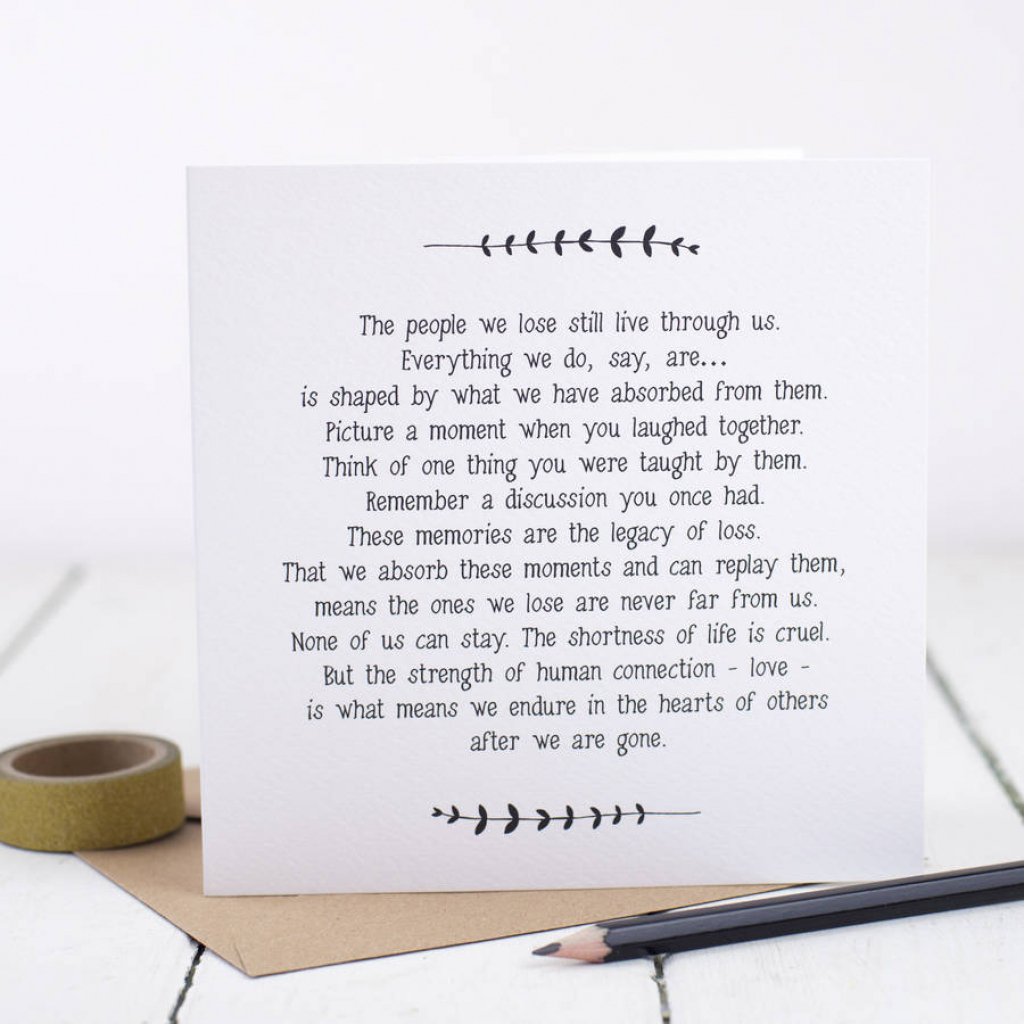 The people we lose still live through us.
Everything we do, say, are...
is shaped by what we have absorbed from them.
Picture a moment when you laughed together.
Think of one thing you were taught by them.
Remember a discussion you once had.
These memories are the legacy of loss.
That we absorb these moments and can replay them,
means the ones we lose are never far from us.
None of us can stay. The shortness of life is cruel.
But the strength of human connection - love -
is what means we endure in the hearts of others
after we are gone.